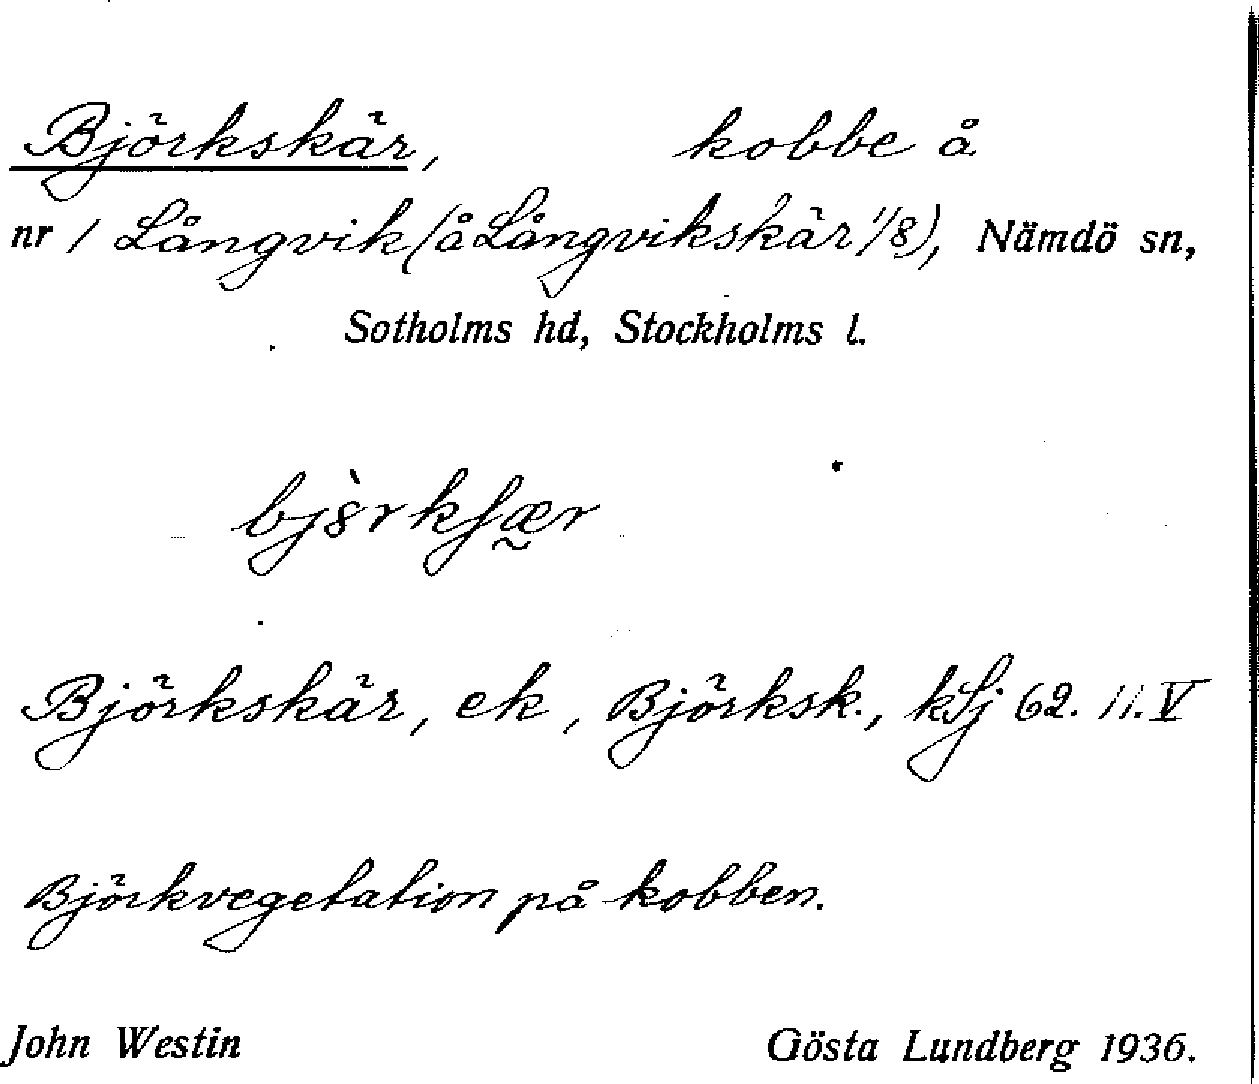 Björkskär, kobbe å
nr 1 Långvik (å Långvikskär 1/8), Nämdö sn,
Sotholms hd, Stockholms l.
Björkskär, ek, Björksk., kSj 62. 11. V
Björkvegetation på kobben.
John Westin Gösta Lundberg 1936.